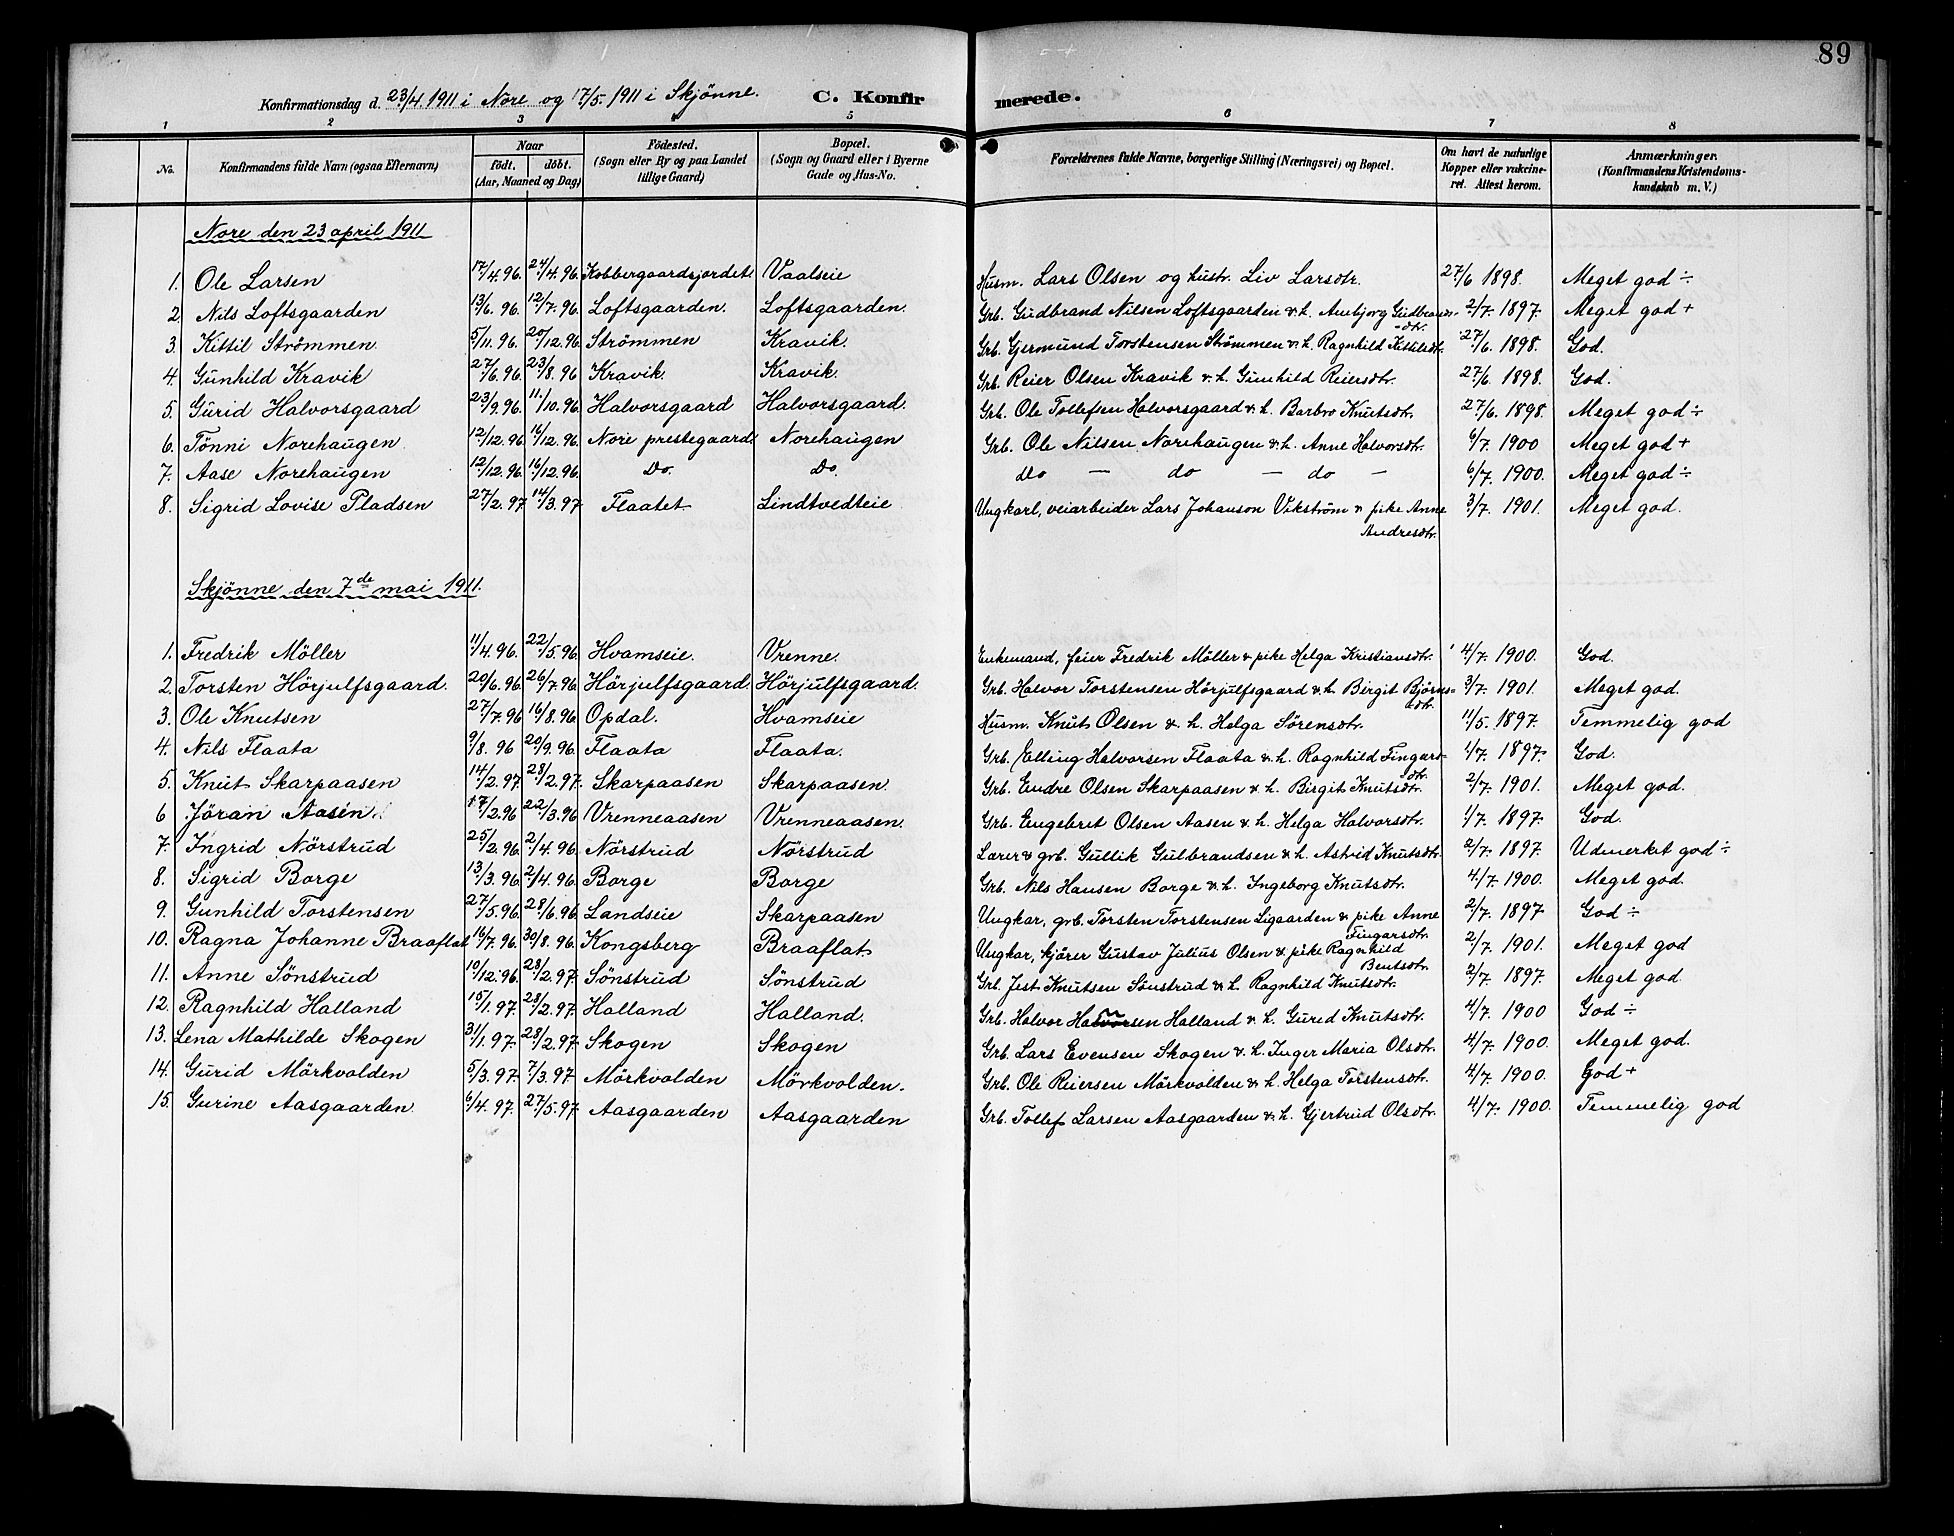 89
Konfirmationsdag d. 23/4. 1911 i Nore og 17/5. 1911 i Skjönne. C. Konfirmerede.
1 2 3 4 5 6 7 8
No. Konfirmandens fulde Navn (ogsaa Efternavn) Naar födt. döbt. (Aar, Maaned og Dag) Födested. (Sogn eller By og paa Landet tillige Gaard) Bopæl. (Sogn og Gaard eller i Byerne Gade og Hus-No. Forældrenes fulde Navne, borgerlige Stilling (Næringsvei) og Bopæl. Om havt de naturlige Kopper eller vakcineret. Attest herom. Anmærkninger. (Konfirmandens Kristendomskundskab m. V.)
Nore den 23 april 1911
1. Ole Larsen 17/4. 96. 24/4. 96. Kobbergaardsjordet Vaalseie Husm. Lars Olsen og hustr. Liv Larsdtr. 27/6 1898. Meget god ÷
2. Nils Loftsgaarden 13/6. 96 12/7. 96. Loftsgaarden. Loftsgaarden. Grb. Gudbrand Nilsen Loftsgaarden & h. Anbjorg Gudbransdtr. 2/7. 1897. Meget god +
3. Kittil Strömmen 5/11. 96. 20/12. 96. Strömmen Kravik. Grb. Gjermund Torstensen Strömmen & h. Ragnhild Kittilsdtr. 27/6. 1898. God.
4. Gunhild Kravik 27/6. 96. 23/8. 96 Kravik. Kravik. Grb. Reier Olsen Kravik & h. Gunhild Reiersdtr. 27/6 1898. God.
5. Gurid Halvorsgaard 23/9. 96. 11/10. 96. Halvorsgaard Halvorsgaard. Grb. Ole Tollefsen Halvorsgaard & h. Barbro Knutsdtr. 27/6. 1898. Meget god ÷
6. Tönni Norehaugen 12/12. 96. 16/12. 96. Nore prestegaard. Norehaugen Grb. Ole Nilsen Norehaugen & h. Anne Halvorsdtr. 6/7. 1900 Meget god +
7. Aase Norehaugen 12/12. 96. 16/12. 96. Do. Do. Do — do — do — 6/7. 1900. Meget god ÷
8. Sigrid Lovise Pladsen 27/2. 97 14/3. 97 Flaatet Lindtvedteie Ungkarl, veiarbeider Lars Johanson Vikström & pike Anne Andresdtr. 3/7. 1901. Meget god.
Skjönne den 7de mai 1911.
1. Fredrik Möller 11/4. 96. 22/5. 96. Hvamseie. Vrenne. Enkemand, feier Fredrik Möller & pike Helga Kristiansdtr. 4/7. 1900. God.
2. Torsten Hörjulfsgaard. 20/6. 96. 26/7. 96. Hörjulfsgaard. Hörjulfsgaard. Grb. Halvor Torstensen Hörjulfsgaard & h. Birgit Björnsdtr. 3/7. 1901. Meget god.
3. Ole Knutsen 27/7. 96 16/8. 96 Opdal. Hvamseie Husm. Knut Olsen & h. Helga Sörensdtr. 11/5. 1897. Temmelig god
4. Nils Flaata 9/8. 96 20/9. 96 Flaata Flaata. Grb. Elling Halvorsen Flaata & h. Ragnhild Fingarsdtr. 4/7. 1897. God.
5. Knut Skarpaasen 14/2. 97. 28/2. 97. Skarpaasen Skarpaasen Grb. Endre Olsen Skarpaasen & h. Birgit Knutsdtr. 2/7. 1901. Meget god.
6 Jöran Aasen 17/2. 96 22/3. 96 Vrenneaasen Vrenneaasen. Grb. Engebret Olsen Aasen & h. Helga Halvorsdtr. 1/7. 1897. God.
7. Ingrid Nörstrud 25/2. 96. 2/4. 96. Nörstrud Nörstrud Lærer & grb. Gullik Gulbrandsen & h. Astrid Knutsdtr. 2/7. 1897. Udmerket god ÷
8. Sigrid Borge 13/3. 96. 2/4. 96. Borge Borge Grb. Nils Hansen Borge & h. Ingeborg Knutsdtr. 4/7. 1900. Meget god.
9. Gunhild Torstensen 27/5. 96. 28/6. 96. Landseie Skarpaasen Ungkar, grb. Torsten Torstensen Ligaarden & pike Anne Fingarsdtr. 2/7. 1897 God ÷
10. Ragna Johanne Braaflat 16/7. 96. 30/8. 96. Kongsberg Braaflat Ungkar, kjører Gustav Julius Olsen & pike Ragnhild Bentsdtr. 2/7. 1901. Meget god
11. Anne Sönstrud 10/12. 96. 28/2. 97. Sönstrud Sönstrud Grb. Jest Knutsen Sönstrud & h. Ragnhild Knutsdtr. 2/7. 1897. Meget god
12. Ragnhild Halland 15/1. 97. 28/2. 97. Halland Halland. Grb. Halvor Halland & h. Gurid Knutsdtr. 4/7. 1900 God ÷
13. Lena Mathilde Skogen 31/1. 97. 28/2. 97. Skogen Skogen Grb. Lars Evensen Skogen & h. Inger Maria Olsdtr. 4/7. 1900. Meget god.
14. Gurid Mörkvolden 5/3. 97. 7/3. 97 Mörkvolden Mörkvolden. Grb. Ole Reiersen Mörkvolden & h. Helga Torstensdtr. 4/7. 1900. God +
15. Gurine Aasgaarden 6/4. 97. 27/5. 97 Aasgaarden Aasgaarden Grb. Tollef Larsen Aasgaarden & h. Gjertrud Olsdtr. 4/7. 1900. Temmelig god